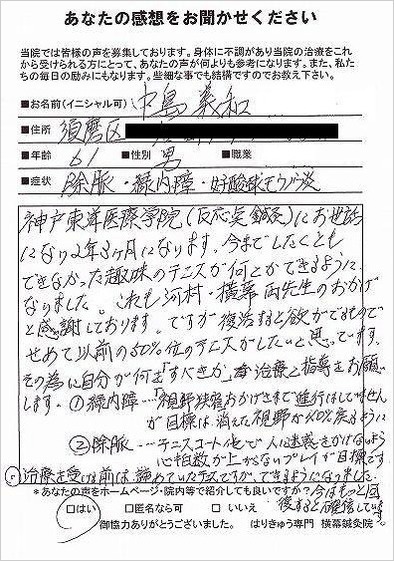 あなたの感想をお聞かせください
当院では皆様の声を募集しております。身体に不調があり当院の治療をこれ
から受けられる方にとって、あなたの声が何よりも参考になります。また、私た
ちの毎日の励みにもなります。些細な事でも結構ですのでお教え下さい。
■お名前(イニシャル可) 中島 義和
■住所 須磨区
■年齢 61 ■性別 男 ■職業
■症状 除脈・緑内障・好酸球
神戸東洋医療学院(反応点鍼灸)にお世話
になり2年3ヶ月になります。今までしたくとも
できなかった趣味のテニスが何とかできるように
なりました。これも河村・横幕両先生のおかげ
と感謝しております。ですが復活すると欲がでるもので
せめて以前の50%位のテニスがしたいと思っています。
その為に自分が何を「すべきか」治療と指導をお願い
します。①緑内障…「視野狭窄」おかげさまで進行はしていません
が目標は、消えた視野が10%戻るように
②除脈…テニスコート他で人に迷惑をかけないよう
心拍数が上がらないプレイが目標です
治療を受ける前は、諦めていたテニスですが、できるようになりました。
*あなたの声をホームページ・院内等で紹介しても良いですか? 今はもっと回
□はい □匿名なら可 □いいえ 復すると確信しています。
御協力ありがとうございました。 はりきゅう専門 横幕鍼灸院